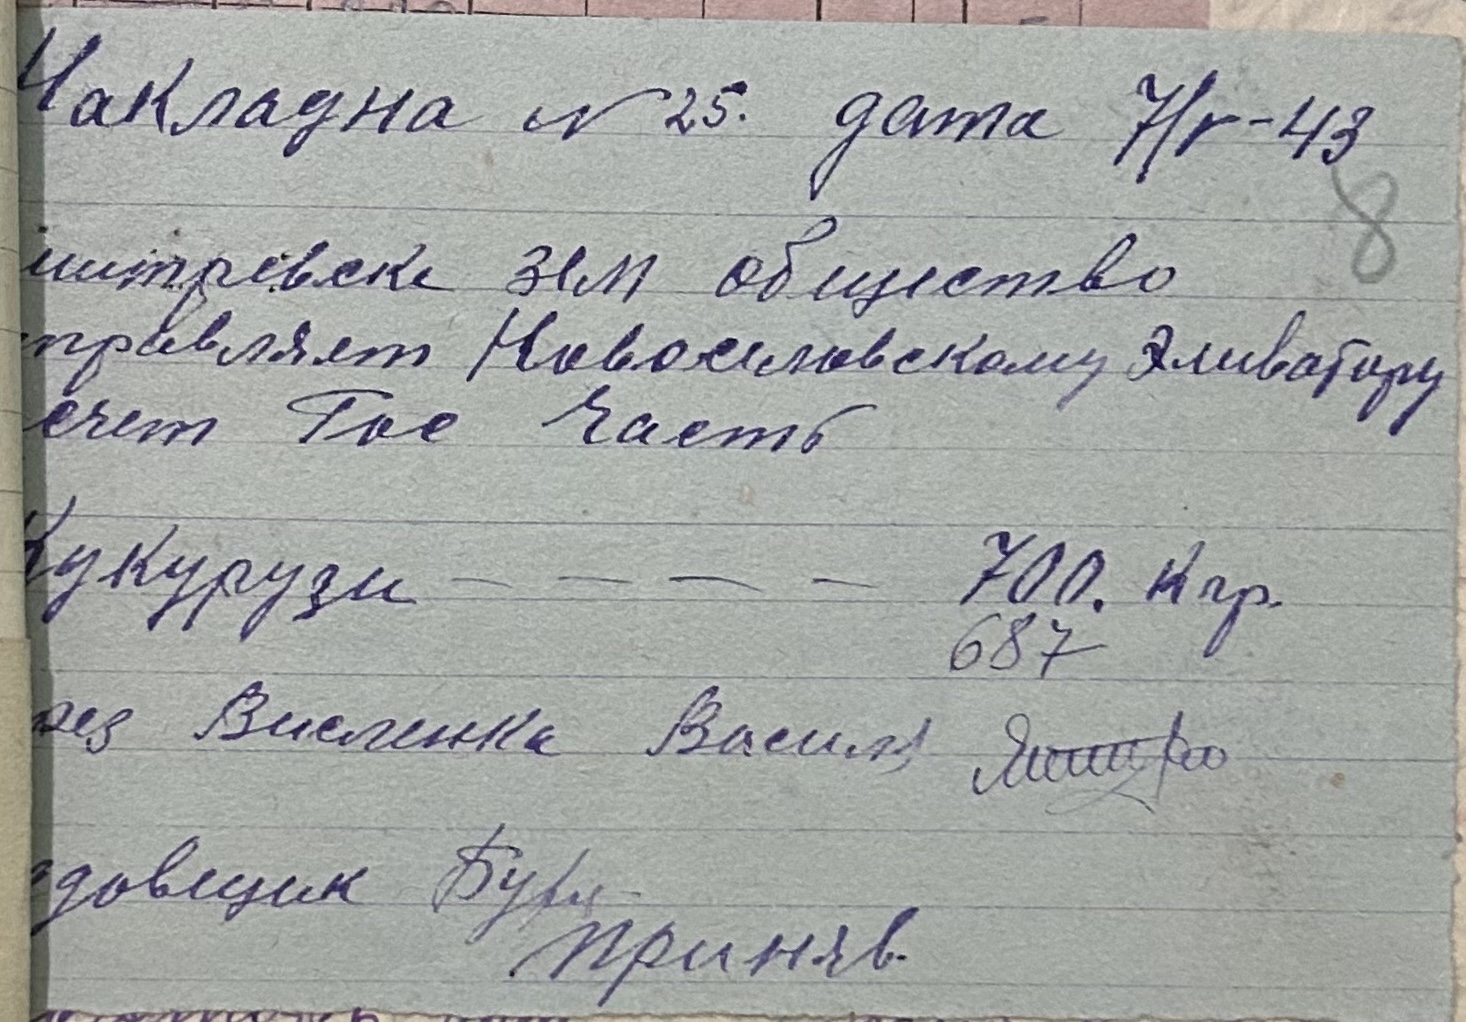 Накладна № 25. дата 7/V-43
8
митревске зем общество
правляет Новоселовскому Эливатору
счет Гос Часть
Кукурузи — — — — 700. Кгр.
687
рез Висленка Васил
довщик Бур
Приняв.